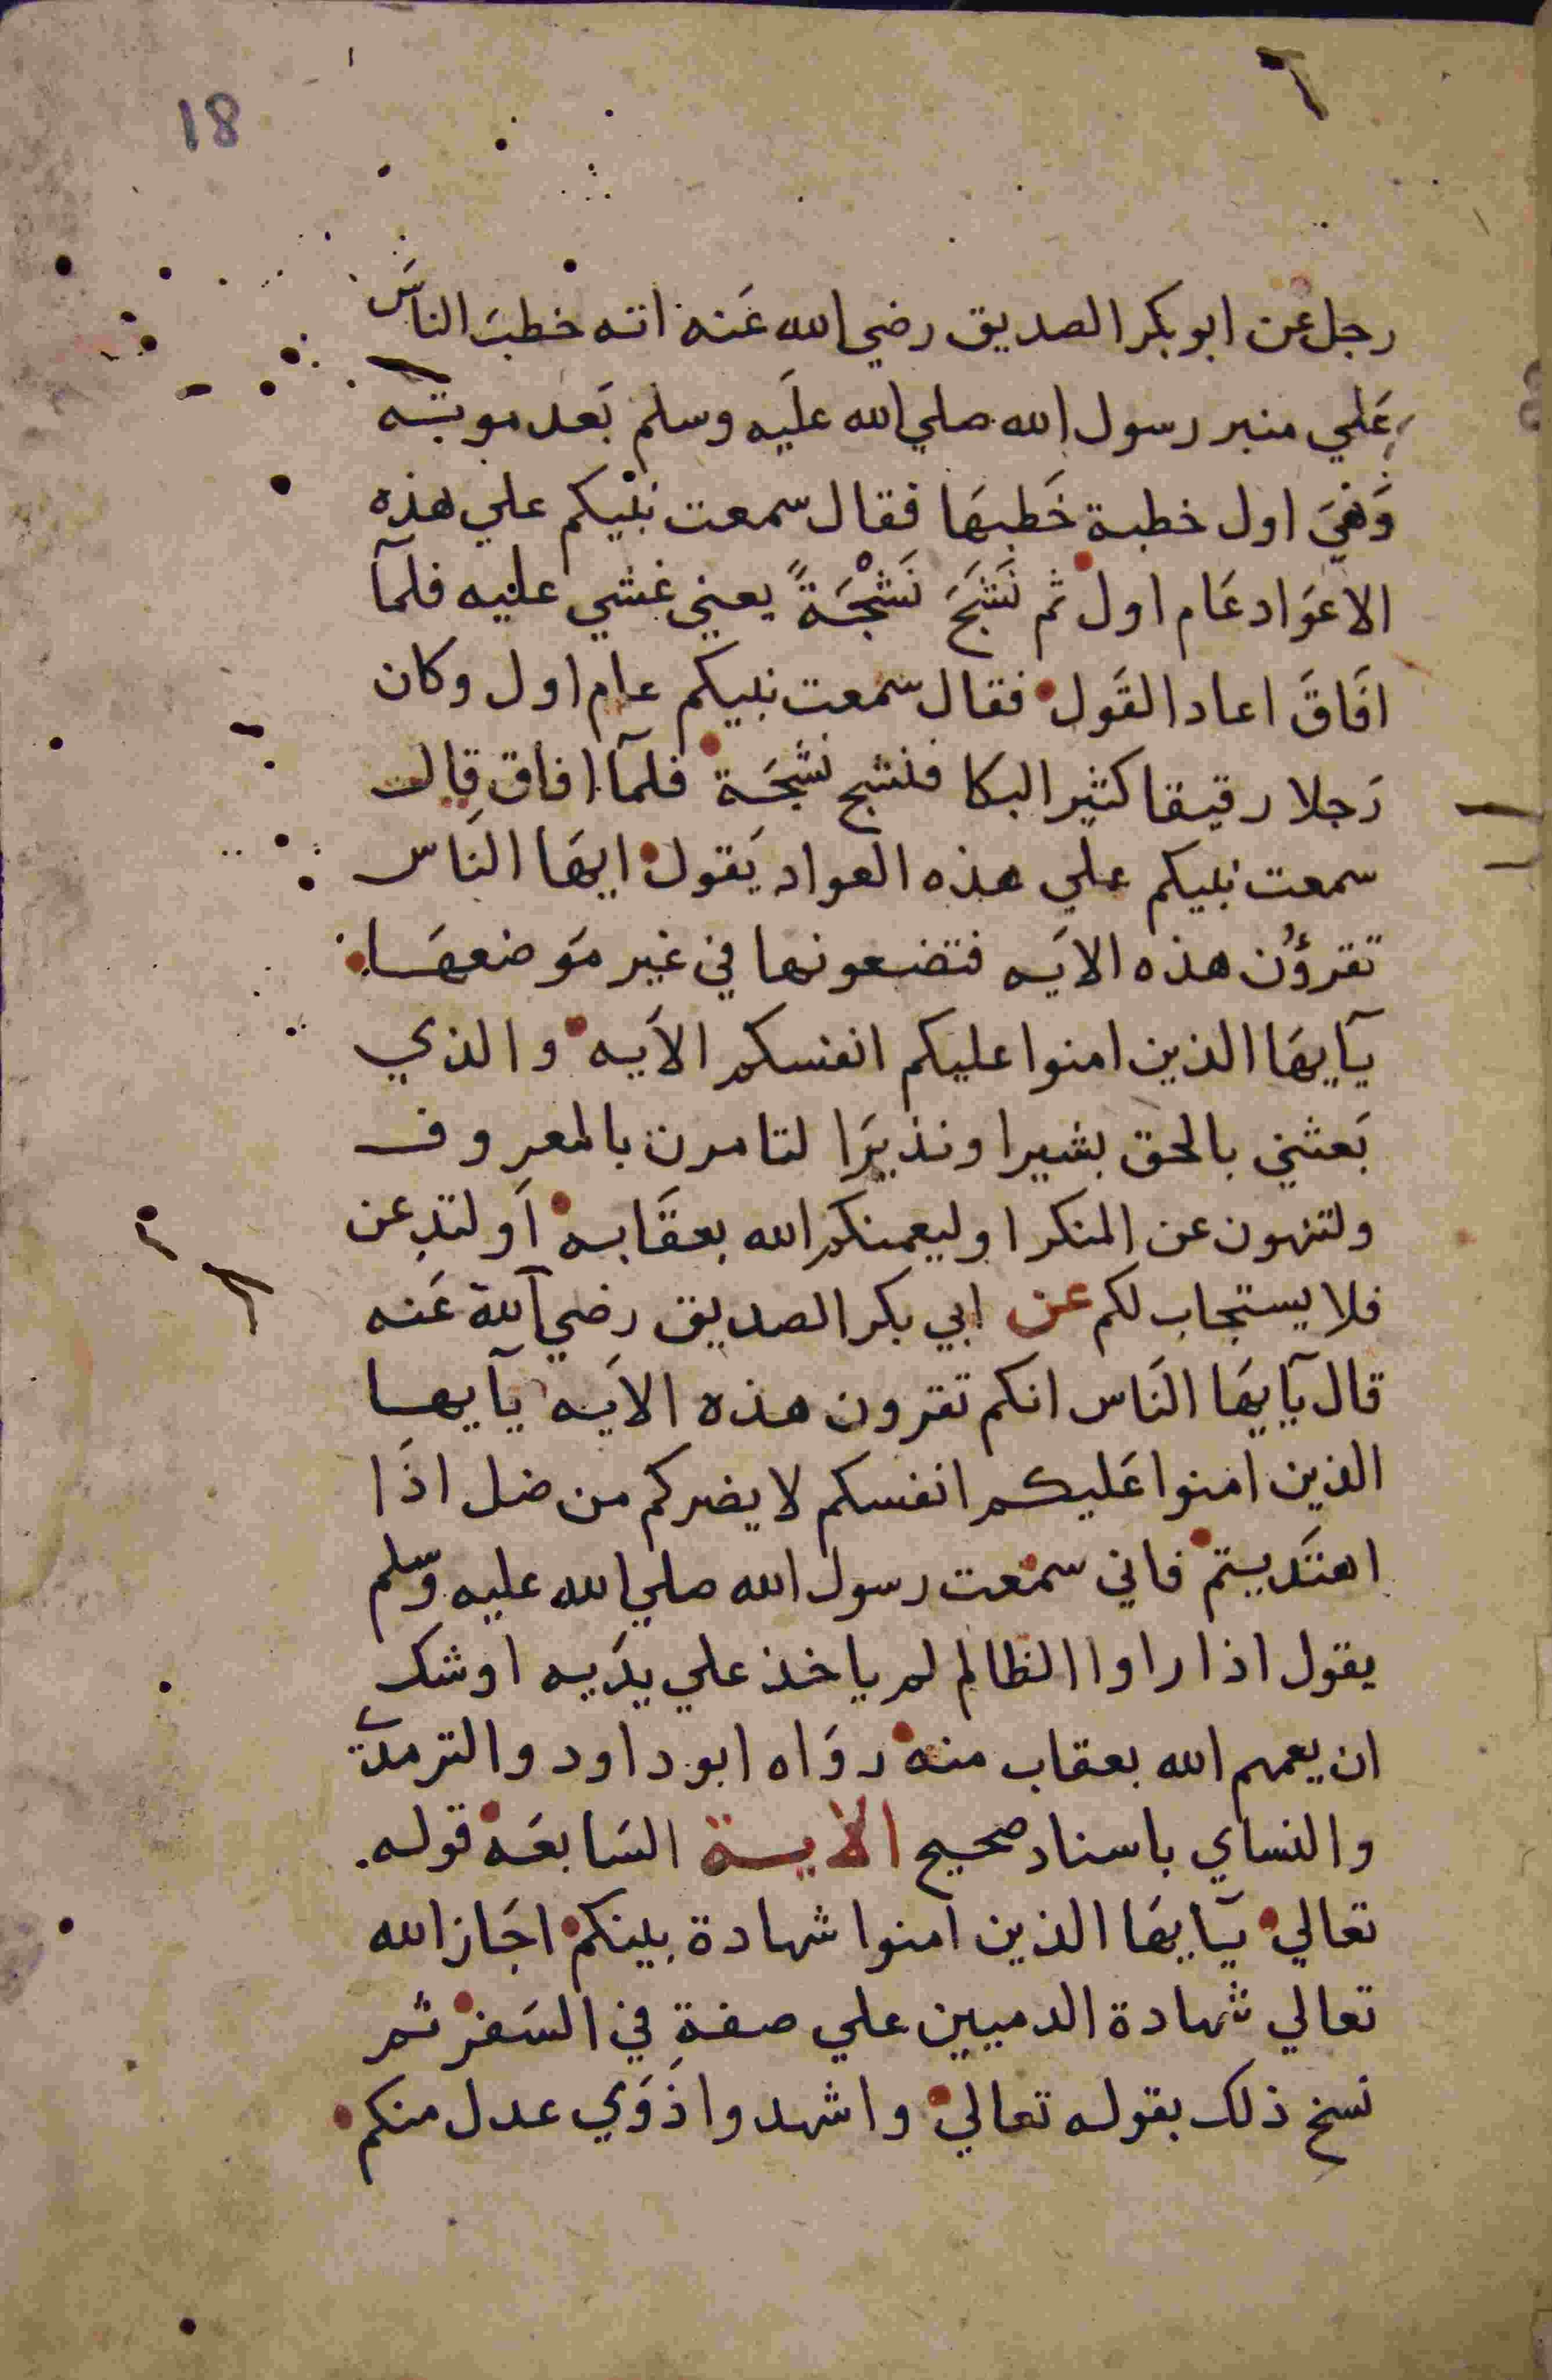 18
رجل عن ابو بكر الصديق رضي الله عَنه انه خطبَ الناسَ
عَلي منبر رسول الله صلي الله علَيه وسلم بَعد موته
وَهيَ اول خطبة خَطبهَا فقال سمعت نبيكم علي هذه
الاعوَاد عَام اول ثم نَشَجَ نَشْجَةً يعني غشي عليه فلمآ
افَاقَ اعاد القَول فقال سمعت نبيكم عام اول وكان
رَجلا رقيقا كثير البكا فنشج نشجَة فلمآ افاق قال
سمعت نبيكم علي هذه العواد يَقول ايهَا النَاس
تقرؤن هذه الايَه فتضعونها في غير مَوضعهَا
يآايهَا الذين امنوا عليكم انفسكم الاَيه والذي
بَعثني بالحق بشيرا ونذيرَا لتامرن بالمعروف
ولتنهون عن المنكر او ليعمنكم الله بعقَابه اَو لتدعن
فلا يستجاب لكم عن ابي بكر الصديق رضي الله عَنه
قال يآايهَا النَاس انكم تقرون هذه الايَه يآايها
الذين امنوا عَليكم انفسكم لا يضركم من ضل اذَا
اهتَديتم فاني سمعت رسول الله صلي الله عليه وسلم
يقول اذا راوا الظالم لم ياخذ علي يدَيه اوشك
ان يعمهم الله بعقاب منه روَاه ابو داود والترمذي
والنساي باسناد صحيح الاية السَابعَة قوله
تعالي يآايهَا الذين امنوا شهادة بينكم اجَاز الله
تعالي شهادة الدميين علي صفة في السَفر ثم
نسخ ذلك بقوله تعالي واشهدوا ذَوَي عدل منكم